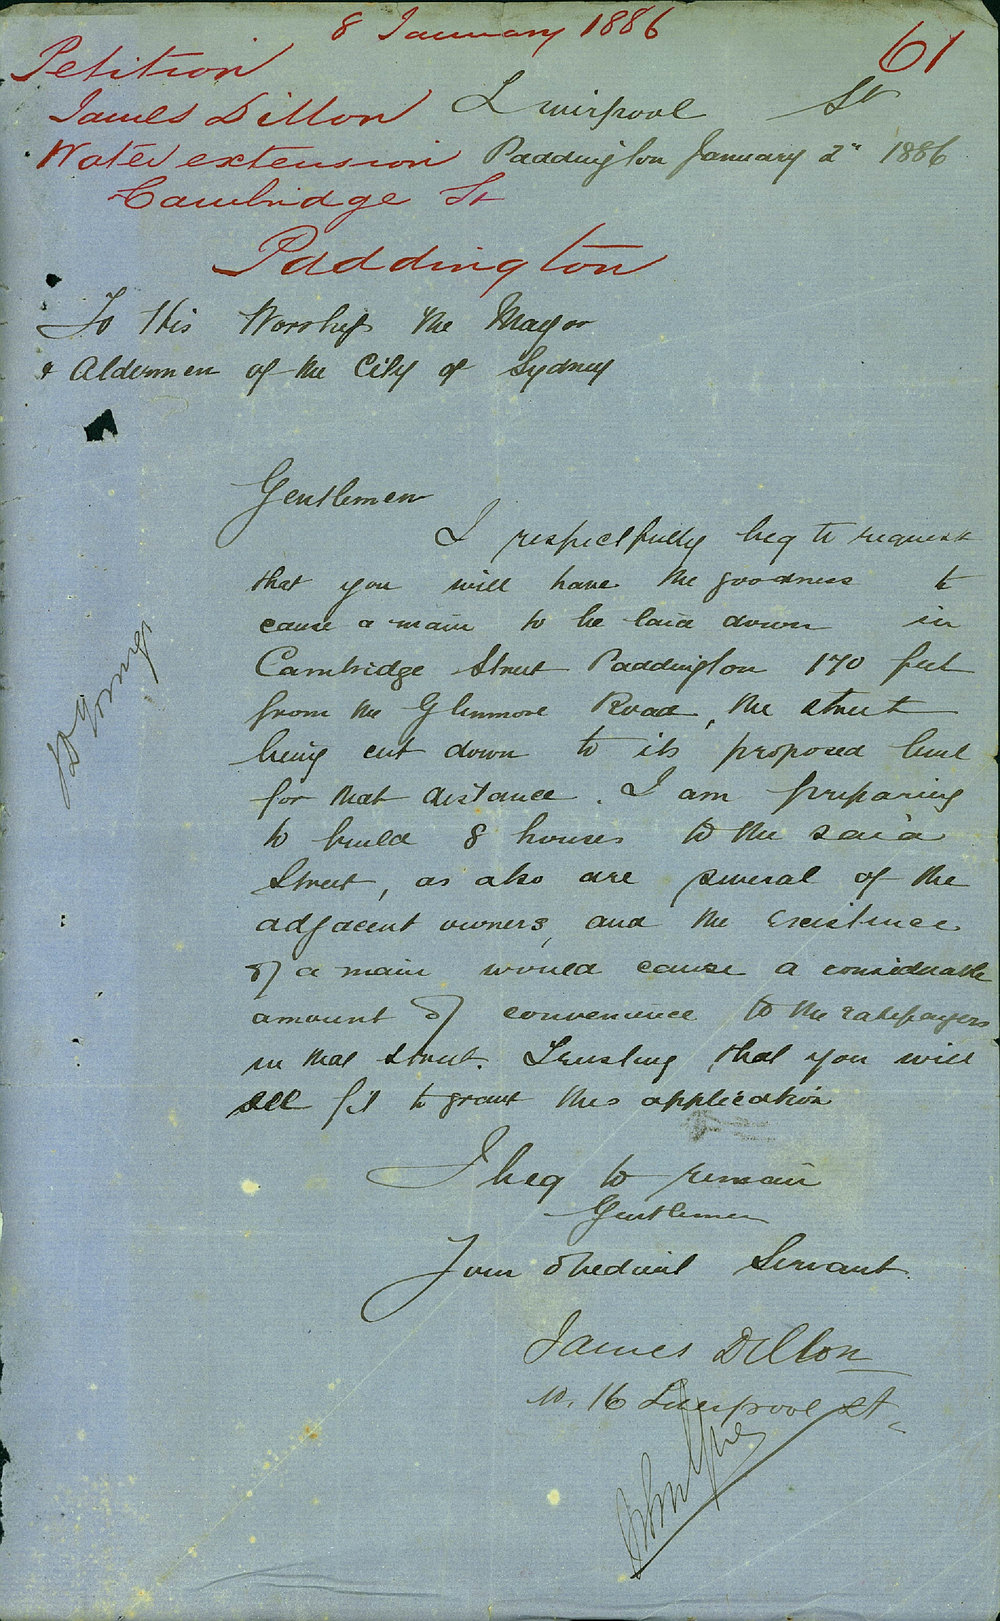 8 January 1886
61
Petition
James Dillon
Water extension
Cambridge St
Paddington
Liverpool St
Paddington January 2" 1886
To His Worship the Mayor
& Aldermen of the City of Sydney
Gentlemen
I respectfully beg to request
that you will have the goodness to
cause a main to be laid down in
Cambridge Street Paddington 170 feet
from the Glenmore Road, the street
being cut down to its proposed level
for that distance. I am preparing
to build 8 houses to the said
Street, as also are several of the
adjacent owners, and the existence
of a main would cause a considerable
amount of convenience to the ratepayers
in that street. Trusting that you will
see fit to grant this application
I beg to remain
Gentlemen
Your obedient Servant.
James Dillon
no. 16 Liverpool St.